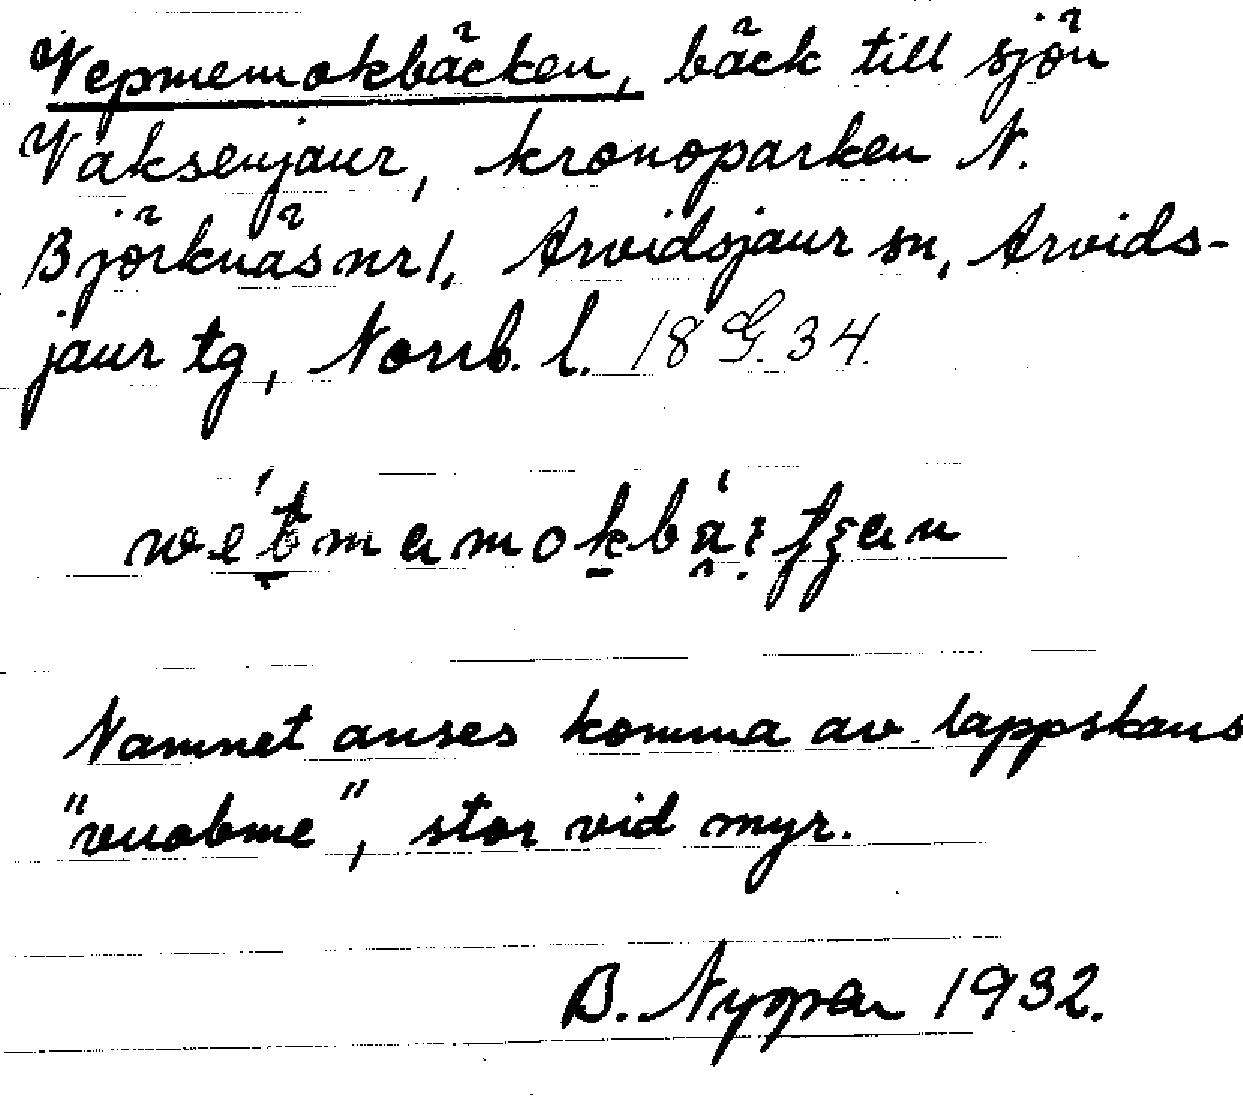 Vepmemokbäcken, bäck till sjön
Vaksenjaur, kronoparken N.
Björknäs nr 1, Arvidsjaur sn, Arvids-
jaur tg, Norrb. l. 18 G. 34.
Namnet anses komma av lappskans
"vuobme", stor vid myr.
B. Nyman 1932.